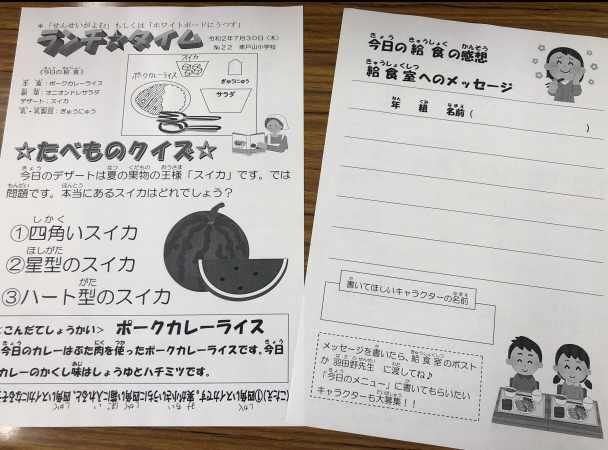 *「せんせいがよむ」もしくは「ホワイトボードにうつす」
ランチ☆タイム
令和2年7月30日(木)
No.22 東戸山小学校
《今日の給食》
主食:ポークカレーライス
副菜:オニオンドレサラダ
デザート:スイカ
乳・乳製品:ぎゅうにゅう
スイカ
ポークカレーライス
ぎゅうにゅう
サラダ
☆たべものクイズ☆
今日のデザートは夏の果物の王様「スイカ」です。では
問題です。本当にあるスイカはどれでしょう?
①四角いスイカ
②星型のスイカ
③ハート型のスイカ
<こんだてしょうかい> ポークカレーライス
今日のカレーはぶた肉を使ったポークカレーライスです。今日
カレーのかくし味はしょうゆとハチミツです。
(こたえ)①四角いスイカです。実が小さいうちに四角い箱に入れると、四角い
今日の給食の感想
給食室へのメッセージ
年 組 名前( )
書いてほしいキャラクターの名前
メッセージを書いたら、給食室のポスト
か 羽田野先生 に渡してね♪
「今日のメニュー」に書いてもらいたい
キャラクターも大募集!!